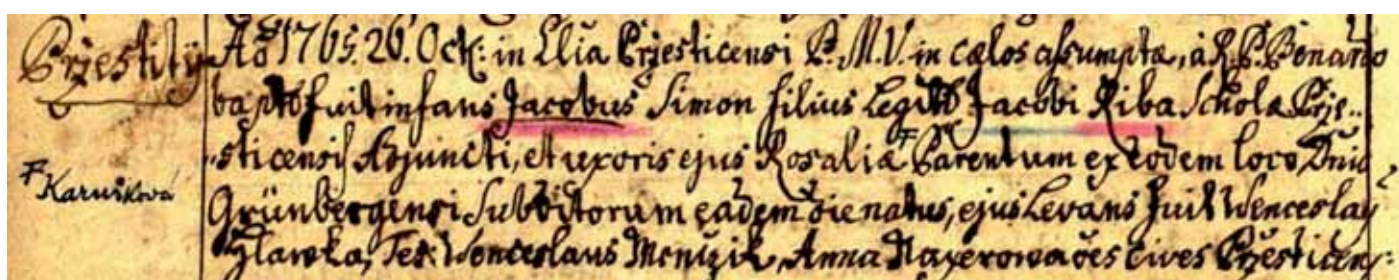 Przestity
Aõ 1765. 26. Oct: in Ellia Przesticensi B. M. V. in cælos assumptæ, à R. P. Bonando
baptõ fuit infans Jacobus Simon filius Legittõ Jacobi Riba Scholæ Prze-
-sticensis Adjuncti, et uxoris ejus Rosaliæ F Parentum ex eodem loco, Dnio
F Karnikova
Grünbergensi Subditorum eadem die natus, ejus Levans fuit Wenceslay
Hlawka, Tes: Wenceslaus Menzik, Anna Naxerowa oẽs Cives Przesticen.